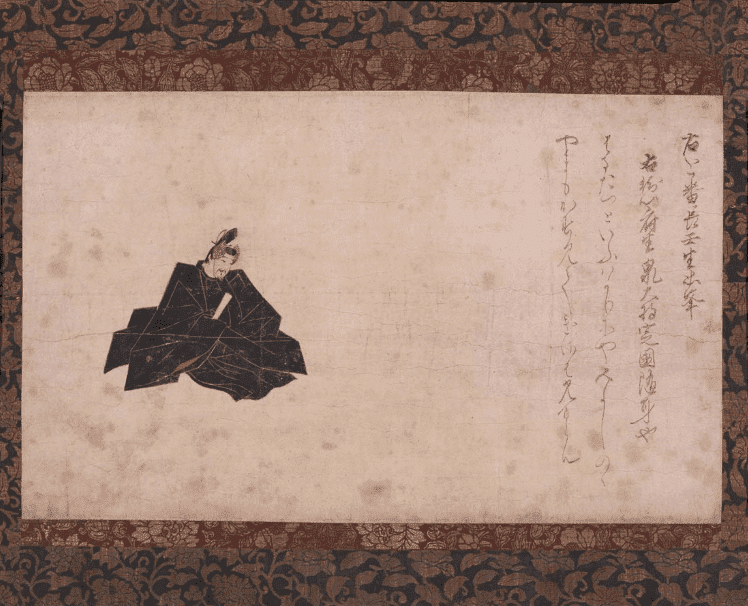 右近番長壬生忠峯
右衛門府生泉大将定国随身也
はるたつといふはかりにやみよしのゝ
やまもかすみてけさは見ゆらん